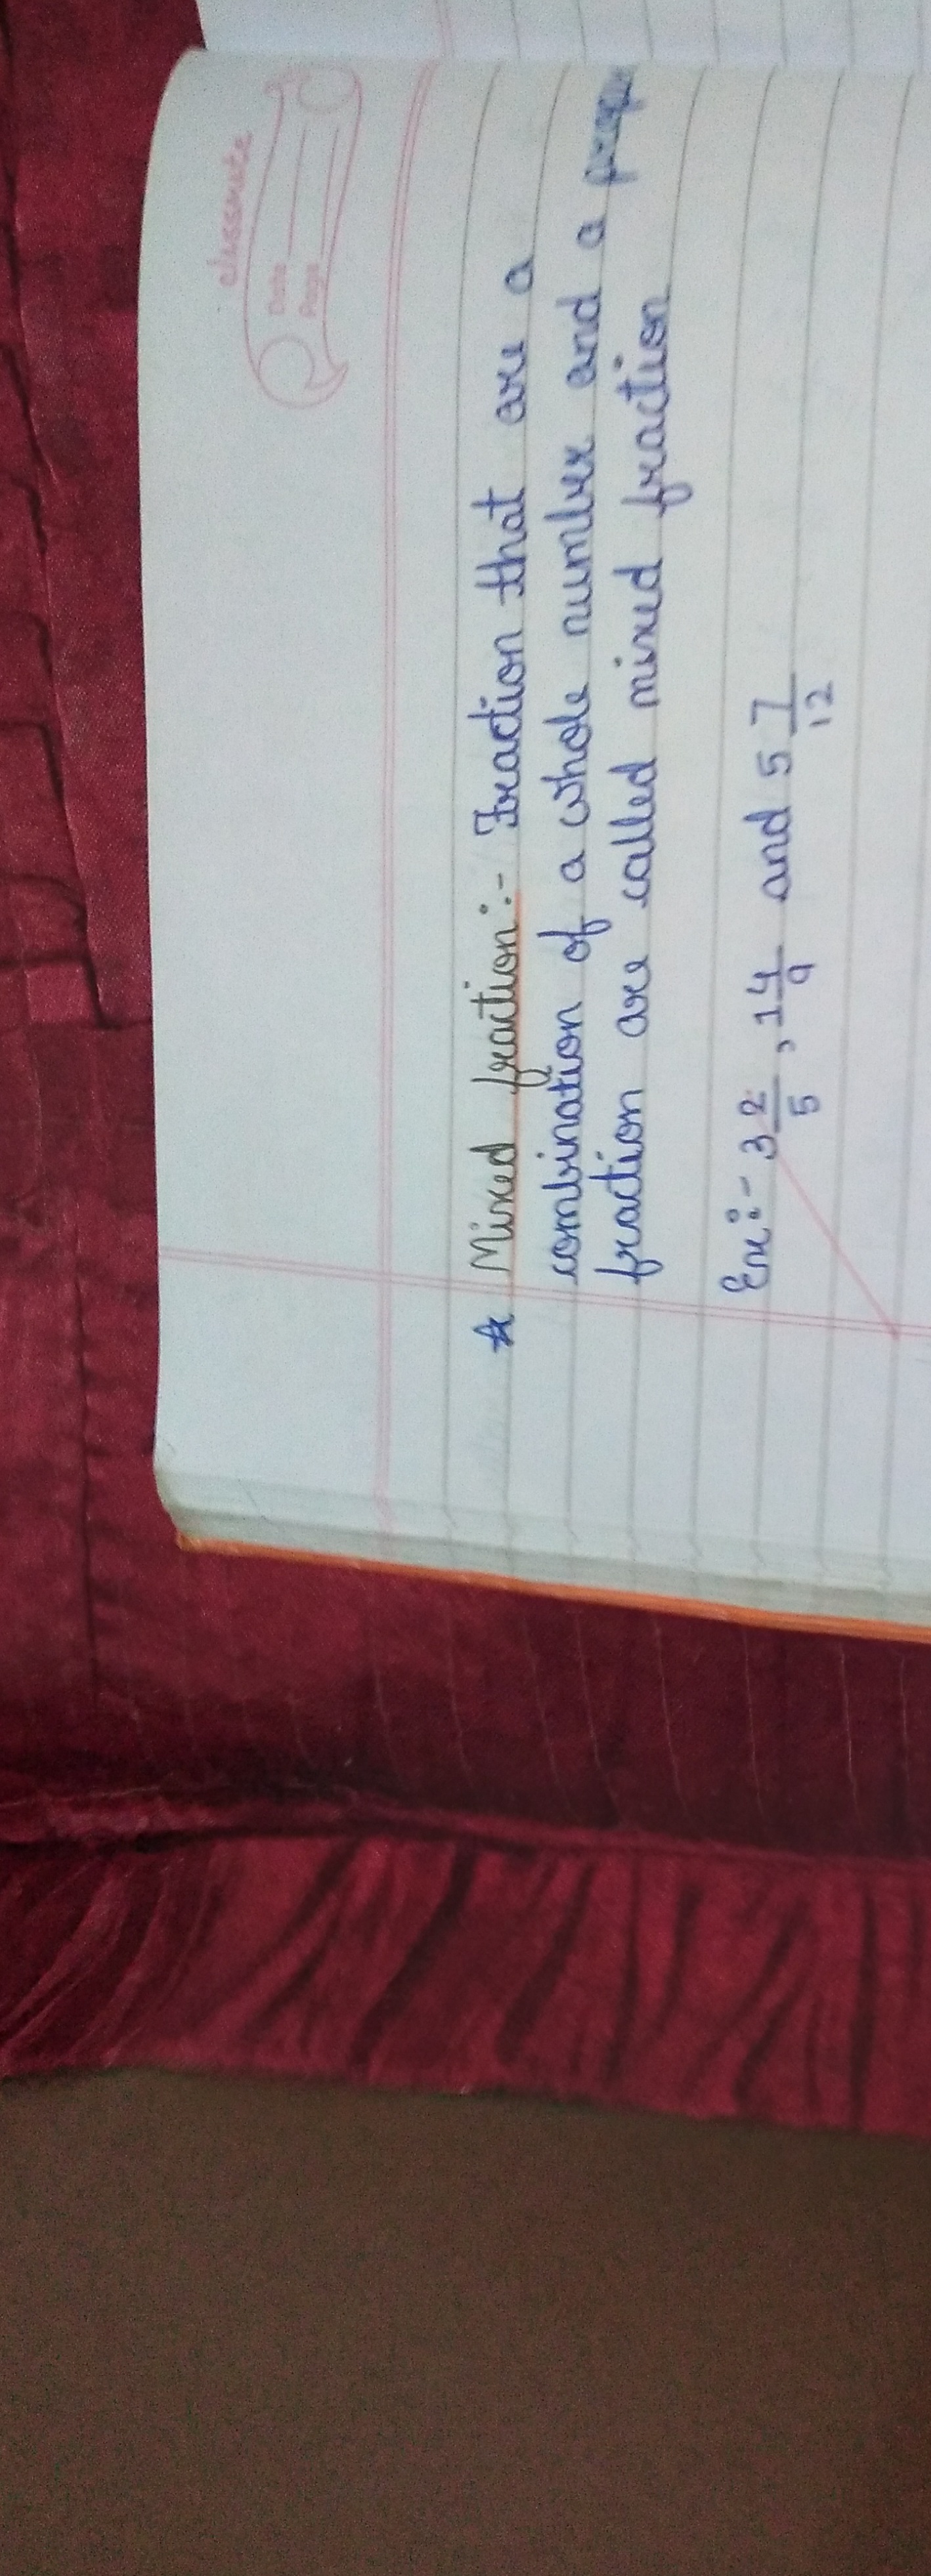 classmate
Date
Page
☆ Mixed fraction :- Fraction that are a
combination of a whole number and a proper
fraction are called mixed fraction
Ex :- 3 2/5 , 1 4/9 and 5 7/12